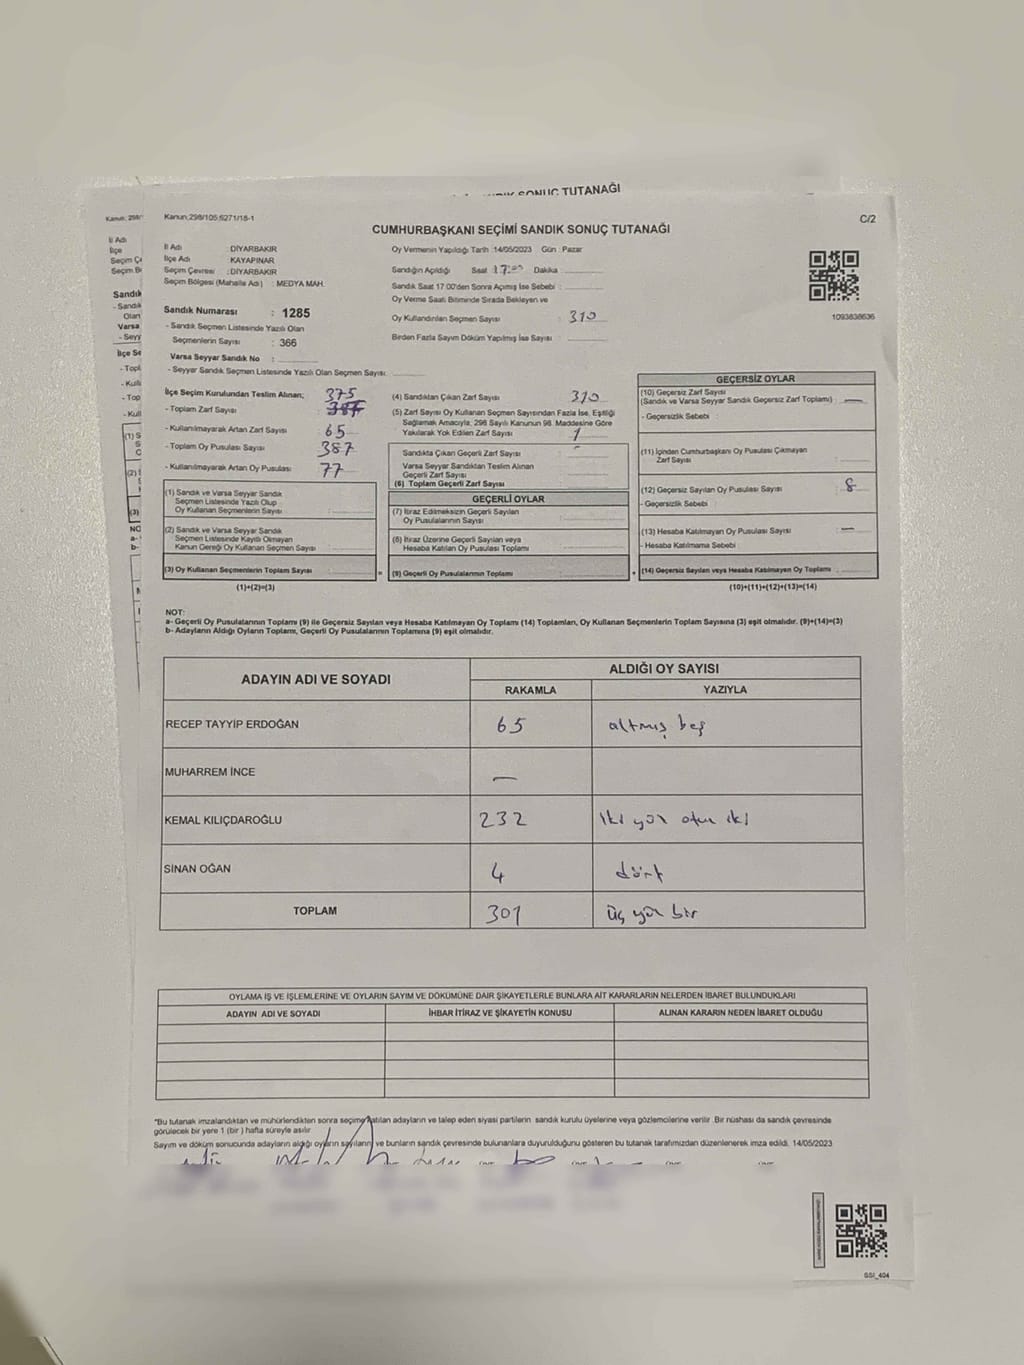 SONUÇ TUTANAĞI
Kanun: 298/
Kanun:298/105;6271/18-1
C/2
CUMHURBAŞKANI SEÇİMİ SANDIK SONUÇ TUTANAĞI
İl Adı : DİYARBAKIR
İlçe Adı : KAYAPINAR
Seçim Çevresi : DİYARBAKIR
Seçim Bölgesi (Mahalle Adı) : MEDYA MAH.
Oy Vermenin Yapıldığı Tarih :14/05/2023 Gün : Pazar
Sandığın Açıldığı Saat 17:00 Dakika
Sandık Saat 17:00'den Sonra Açılmış İse Sebebi :
Oy Verme Saati Bitiminde Sırada Bekleyen ve
Oy Kullandırılan Seçmen Sayısı : 310
Birden Fazla Sayım Döküm Yapılmış İse Sayısı :
1093838636
Sandık Numarası : 1285
- Sandık Seçmen Listesinde Yazılı Olan
Seçmenlerin Sayısı : 366
Varsa Seyyar Sandık No :
- Seyyar Sandık Seçmen Listesinde Yazılı Olan Seçmen Sayısı:
İlçe Seçim Kurulundan Teslim Alınan; 375
- Toplam Zarf Sayısı 387
- Kullanılmayarak Artan Zarf Sayısı : 65
- Toplam Oy Pusulası Sayısı : 387
- Kullanılmayarak Artan Oy Pusulası : 77
(1) Sandık ve Varsa Seyyar Sandık
Seçmen Listesinde Yazılı Olup
Oy Kullanan Seçmenlerin Sayısı :
(2) Sandık ve Varsa Seyyar Sandık
Seçmen Listesinde Kayıtlı Olmayan
Kanun Gereği Oy Kullanan Seçmen Sayısı :
(3) Oy Kullanan Seçmenlerin Toplam Sayısı :
(1)+(2)=(3)
(4) Sandıktan Çıkan Zarf Sayısı : 310
(5) Zarf Sayısı Oy Kullanan Seçmen Sayısından Fazla İse, Eşitliği
Sağlamak Amacıyla; 298 Sayılı Kanunun 98. Maddesine Göre
Yakılarak Yok Edilen Zarf Sayısı : 1
Sandıkta Çıkan Geçerli Zarf Sayısı :
Varsa Seyyar Sandıktan Teslim Alınan
Geçerli Zarf Sayısı :
(6) Toplam Geçerli Zarf Sayısı :
GEÇERLİ OYLAR
(7) İtiraz Edilmeksizin Geçerli Sayılan
Oy Pusulalarının Sayısı :
(8) İtiraz Üzerine Geçerli Sayılan veya
Hesaba Katılan Oy Pusulası Toplamı :
(9) Geçerli Oy Pusulalarının Toplamı :
GEÇERSİZ OYLAR
(10) Geçersiz Zarf Sayısı
(Sandık ve Varsa Seyyar Sandık Geçersiz Zarf Toplamı) : —
- Geçersizlik Sebebi :
(11) İçinden Cumhurbaşkanı Oy Pusulası Çıkmayan
Zarf Sayısı :
(12) Geçersiz Sayılan Oy Pusulası Sayısı : 8
- Geçersizlik Sebebi :
(13) Hesaba Katılmayan Oy Pusulası Sayısı : —
- Hesaba Katılmama Sebebi :
(14) Geçersiz Sayılan veya Hesaba Katılmayan Oy Toplamı :
(10)+(11)+(12)+(13)=(14)
NOT:
a- Geçerli Oy Pusulalarının Toplamı (9) ile Geçersiz Sayılan veya Hesaba Katılmayan Oy Toplamı (14) Toplamları, Oy Kullanan Seçmenlerin Toplam Sayısına (3) eşit olmalıdır. (9)+(14)=(3)
b- Adayların Aldığı Oyların Toplamı, Geçerli Oy Pusulalarının Toplamına (9) eşit olmalıdır.
ADAYIN ADI VE SOYADI ALDIĞI OY SAYISI
RAKAMLA YAZIYLA
RECEP TAYYİP ERDOĞAN 65 altmış beş
MUHARREM İNCE —
KEMAL KILIÇDAROĞLU 232 iki yüz otuz iki
SİNAN OĞAN 4 dört
TOPLAM 301 üç yüz bir
OYLAMA İŞ VE İŞLEMLERİNE VE OYLARIN SAYIM VE DÖKÜMÜNE DAİR ŞİKAYETLERLE BUNLARA AİT KARARLARIN NELERDEN İBARET BULUNDUKLARI
ADAYIN ADI VE SOYADI İHBAR İTİRAZ VE ŞİKAYETİN KONUSU ALINAN KARARIN NEDEN İBARET OLDUĞU
*Bu tutanak imzalandıktan ve mühürlendikten sonra seçime katılan adayların ve talep eden siyasi partilerin sandık kurulu üyelerine veya gözlemcilerine verilir .Bir nüshası da sandık çevresinde
görülecek bir yere 1 (bir ) hafta süreyle asılır
Sayım ve döküm sonucunda adayların aldığı oyların sayılarını ve bunların sandık çevresinde bulunanlara duyurulduğunu gösteren bu tutanak tarafımızdan düzenlenerek imza edildi. 14/05/2023
GSI_404